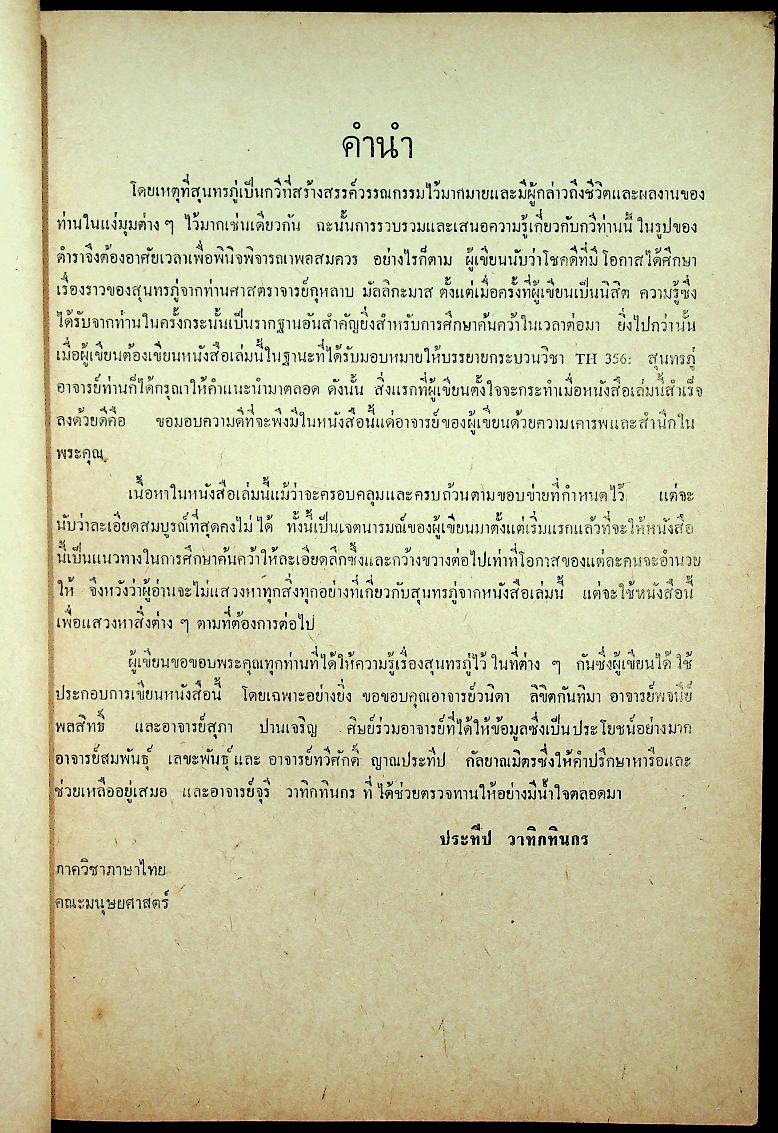 คำนำ
โดยเหตุที่สุนทรภู่เป็นกวีที่สร้างสรรค์วรรณกรรมไว้มากมายและมีผู้กล่าวถึงชีวิตและผลงานของ
ท่านในแง่มุมต่าง ๆ ไว้มากเช่นเดียวกัน ฉะนั้นการรวบรวมและเสนอความรู้เกี่ยวกับกวีท่านนี้ ในรูปของ
ตำราจึงต้องอาศัยเวลาเพื่อพินิจพิจารณาพอสมควร อย่างไรก็ตาม ผู้เขียนนับว่าโชคดีที่มีโอกาสได้ศึกษา
เรื่องราวของสุนทรภู่จากท่านศาสตราจารย์กุหลาบ มัลลิกะมาส ตั้งแต่เมื่อครั้งที่ผู้เขียนเป็นนิสิต ความรู้ซึ่ง
ได้รับจากท่านในครั้งกระนั้นเป็นรากฐานอันสำคัญยิ่งสำหรับการศึกษาค้นคว้าในเวลาต่อมา ยิ่งไปกว่านั้น
เมื่อผู้เขียนต้องเขียนหนังสือเล่มนี้ในฐานะที่ได้รับมอบหมายให้บรรยายกระบวนวิชา TH 356: สุนทรภู่
อาจารย์ท่านก็ได้กรุณาให้คำแนะนำมาตลอด ดังนั้น สิ่งแรกที่ผู้เขียนตั้งใจจะกระทำเมื่อหนังสือเล่มนี้สำเร็จ
ลงด้วยดีคือ ขอมอบความดีที่จะพึงมีในหนังสือนี้แด่อาจารย์ของผู้เขียนด้วยความเคารพและสำนึกใน
พระคุณ
เนื้อหาในหนังสือเล่มนี้แม้ว่าจะครอบคลุมและครบถ้วนตามขอบข่ายที่กำหนดไว้ แต่จะ
นับว่าละเอียดสมบูรณ์ที่สุดคงไม่ได้ ทั้งนี้เป็นเจตนารมณ์ของผู้เขียนมาตั้งแต่เริ่มแรกแล้วที่จะให้หนังสือ
นี้เป็นแนวทางในการศึกษาค้นคว้าให้ละเอียดลึกซึ้งและกว้างขวางต่อไปเท่าที่โอกาสของแต่ละคนจะอำนวย
ให้ จึงหวังว่าผู้อ่านจะไม่แสวงหาทุกสิ่งทุกอย่างที่เกี่ยวกับสุนทรภู่จากหนังสือเล่มนี้ แต่จะใช้หนังสือนี้
เพื่อแสวงหาสิ่งต่าง ๆ ตามที่ต้องการต่อไป
ผู้เขียนขอขอบพระคุณทุกท่านที่ได้ให้ความรู้เรื่องสุนทรภู่ไว้ ในที่ต่าง ๆ กันซึ่งผู้เขียนได้ใช้
ประกอบการเขียนหนังสือนี้ โดยเฉพาะอย่างยิ่ง ขอขอบคุณอาจารย์วนิดา ลิขิตกันทิมา อาจารย์พจนีย์
พลสิทธิ์ และอาจารย์สุภา ปานเจริญ ศิษย์ร่วมอาจารย์ที่ได้ให้ข้อมูลซึ่งเป็นประโยชน์อย่างมาก
อาจารย์สมพันธุ์ เลขะพันธุ์ และ อาจารย์ทวีศักดิ์ ญาณประทีป กัลยาณมิตรซึ่งให้คำปรึกษาหารือและ
ช่วยเหลืออยู่เสมอ และอาจารย์จุรี วาทิกทินกร ที่ได้ช่วยตรวจทานให้อย่างมีน้ำใจตลอดมา
ประทีป วาทิกทินกร
ภาควิชาภาษาไทย
คณะมนุษยศาสตร์